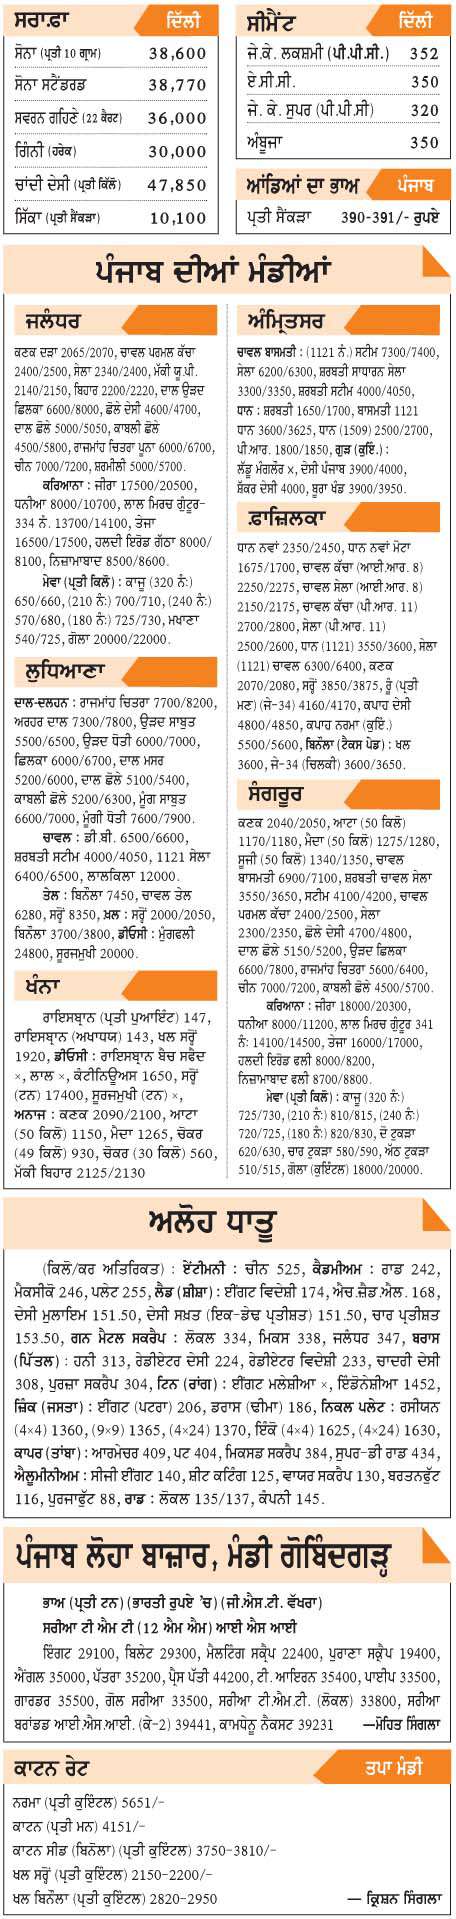 ਸਰਾਫ਼ਾ ਦਿੱਲੀ
ਸੋਨਾ (ਪ੍ਰਤੀ 10 ਗ੍ਰਾਮ) 38,600
ਸੋਨਾ ਸਟੈਂਡਰਡ 38,770
ਸਵਰਨ ਗਹਿਣੇ (22 ਕੈਰਟ) 36,000
ਗਿੰਨੀ (ਹਰੇਕ) 30,000
ਚਾਂਦੀ ਦੇਸੀ (ਪ੍ਰਤੀ ਕਿੱਲੋ) 47,850
ਸਿੱਕਾ (ਪ੍ਰਤੀ ਸੈਂਕੜਾ) 10,100
ਸੀਮੈਂਟ ਦਿੱਲੀ
ਜੇ.ਕੇ. ਲਕਸ਼ਮੀ (ਪੀ.ਪੀ.ਸੀ.) 352
ਏ.ਸੀ.ਸੀ. 350
ਜੇ. ਕੇ. ਸੁਪਰ (ਪੀ.ਪੀ.ਸੀ) 320
ਅੰਬੂਜਾ 350
ਆਂਡਿਆਂ ਦਾ ਭਾਅ ਪੰਜਾਬ
ਪ੍ਰਤੀ ਸੈਂਕੜਾ 390-391/- ਰੁਪਏ
ਪੰਜਾਬ ਦੀਆਂ ਮੰਡੀਆਂ
ਜਲੰਧਰ
ਕਣਕ ਦੜਾ 2065/2070, ਚਾਵਲ ਪਰਮਲ ਕੱਚਾ
2400/2500, ਸੇਲਾ 2340/2400, ਮੱਕੀ ਯੂ.ਪੀ.
2140/2150, ਬਿਹਾਰ 2200/2220, ਦਾਲ ਉੜਦ
ਛਿਲਕਾ 6600/8000, ਛੋਲੇ ਦੇਸੀ 4600/4700,
ਦਾਲ ਛੋਲੇ 5000/5050, ਕਾਬਲੀ ਛੋਲੇ
4500/5800, ਰਾਜਮਾਂਹ ਚਿਤਰਾ ਪੂਨਾ 6000/6700,
ਚੀਨ 7000/7200, ਸ਼ਰਮੀਲੀ 5000/5700.
ਕਰਿਆਨਾ : ਜੀਰਾ 17500/20500,
ਧਨੀਆ 8000/10700, ਲਾਲ ਮਿਰਚ ਗੁੰਟੂਰ-
334 ਨੰ. 13700/14100, ਤੇਜਾ
16500/17500, ਹਲਦੀ ਇਰੋਡ ਗੱਠਾ 8000/
8100, ਨਿਜ਼ਾਮਾਬਾਦ 8500/8600.
ਮੇਵਾ (ਪ੍ਰਤੀ ਕਿਲੋ) : ਕਾਜੂ (320 ਨੰ:)
650/660, (210 ਨੰ:) 700/710, (240 ਨੰ:)
570/680, (180 ਨੰ:) 725/730, ਮਖਾਣਾ
540/725, ਗੋਲਾ 20000/22000.
ਲੁਧਿਆਣਾ
ਦਾਲ-ਦਲਹਨ : ਰਾਜਮਾਂਹ ਚਿਤਰਾ 7700/8200,
ਅਰਹਰ ਦਾਲ 7300/7800, ਉੜਦ ਸਾਬੁਤ
5500/6500, ਉੜਦ ਧੋਤੀ 6000/7000,
ਛਿਲਕਾ 6000/6700, ਦਾਲ ਮਸਰ
5200/6000, ਦਾਲ ਛੋਲੇ 5100/5400,
ਕਾਬਲੀ ਛੋਲੇ 5200/6300, ਮੂੰਗ ਸਾਬੁਤ
6600/7000, ਮੂੰਗੀ ਧੋਤੀ 7600/7900.
ਚਾਵਲ : ਡੀ.ਬੀ. 6500/6600,
ਸ਼ਰਬਤੀ ਸਟੀਮ 4000/4050, 1121 ਸੇਲਾ
6400/6500, ਲਾਲਕਿਲਾ 12000.
ਤੇਲ : ਬਿਨੌਲਾ 7450, ਚਾਵਲ ਤੇਲ
6280, ਸਰ੍ਹੋਂ 8350, ਖ਼ਲ : ਸਰ੍ਹੋਂ 2000/2050,
ਬਿਨੌਲਾ 3700/3800, ਡੀਓਸੀ : ਮੂੰਗਫਲੀ
24800, ਸੂਰਜਮੁਖੀ 20000.
ਖੰਨਾ
ਰਾਇਸਬ੍ਰਾਨ (ਪ੍ਰਤੀ ਪੁਆਇੰਟ) 147,
ਰਾਇਸਬ੍ਰਾਨ (ਅਖਾਧਯ) 143, ਖਲ ਸਰ੍ਹੋਂ
1920, ਡੀਓਸੀ : ਰਾਇਸਬ੍ਰਾਨ ਬੈਚ ਸਫੈਦ
×, ਲਾਲ ×, ਕੰਟੀਨਿਊਅਸ 1650, ਸਰ੍ਹੋਂ
(ਟਨ) 17400, ਸੂਰਜਮੁਖੀ (ਟਨ) ×,
ਅਨਾਜ : ਕਣਕ 2090/2100, ਆਟਾ
(50 ਕਿਲੋ) 1150, ਮੈਦਾ 1265, ਚੋਕਰ
(49 ਕਿਲੋ) 930, ਚੋਕਰ (30 ਕਿਲੋ) 560,
ਮੱਕੀ ਬਿਹਾਰ 2125/2130
ਅੰਮ੍ਰਿਤਸਰ
ਚਾਵਲ ਬਾਸਮਤੀ : (1121 ਨੰ.) ਸਟੀਮ 7300/7400,
ਸੇਲਾ 6200/6300, ਸ਼ਰਬਤੀ ਸਾਧਾਰਨ ਸੇਲਾ
3300/3350, ਸ਼ਰਬਤੀ ਸਟੀਮ 4000/4050,
ਧਾਨ : ਸ਼ਰਬਤੀ 1650/1700, ਬਾਸਮਤੀ 1121
ਧਾਨ 3600/3625, ਧਾਨ (1509) 2500/2700,
ਪੀ.ਆਰ. 1800/1850, ਗੁੜ (ਕੁਇੰ.) :
ਲੱਡੂ ਮੰਗਲੌਰ ×, ਦੇਸੀ ਪੰਜਾਬ 3900/4000,
ਸ਼ੱਕਰ ਦੇਸੀ 4000, ਬੂਰਾ ਖੰਡ 3900/3950.
ਫ਼ਾਜ਼ਿਲਕਾ
ਧਾਨ ਨਵਾਂ 2350/2450, ਧਾਨ ਨਵਾਂ ਮੋਟਾ
1675/1700, ਚਾਵਲ ਕੱਚਾ (ਆਈ.ਆਰ. 8)
2250/2275, ਚਾਵਲ ਸੇਲਾ (ਆਈ.ਆਰ. 8)
2150/2175, ਚਾਵਲ ਕੱਚਾ (ਪੀ.ਆਰ. 11)
2700/2800, ਸੇਲਾ (ਪੀ.ਆਰ. 11)
2500/2600, ਧਾਨ (1121) 3550/3600, ਸੇਲਾ
(1121) ਚਾਵਲ 6300/6400, ਕਣਕ
2070/2080, ਸਰ੍ਹੋਂ 3850/3875, ਰੂੰ (ਪ੍ਰਤੀ
ਮਣ) (ਜੇ-34) 4160/4170, ਕਪਾਹ ਦੇਸੀ
4800/4850, ਕਪਾਹ ਨਰਮਾ (ਕੁਇੰ.)
5500/5600, ਬਿਨੌਲਾ (ਟੈਕਸ ਪੇਡ) : ਖਲ
3600, ਜੇ-34 (ਚਿਲਕੀ) 3600/3650.
ਸੰਗਰੂਰ
ਕਣਕ 2040/2050, ਆਟਾ (50 ਕਿਲੋ)
1170/1180, ਮੈਦਾ (50 ਕਿਲੋ) 1275/1280,
ਸੂਜੀ (50 ਕਿਲੋ) 1340/1350, ਚਾਵਲ
ਬਾਸਮਤੀ 6900/7100, ਸ਼ਰਬਤੀ ਚਾਵਲ ਸੇਲਾ
3550/3650, ਸਟੀਮ 4100/4200, ਚਾਵਲ
ਪਰਮਲ ਕੱਚਾ 2400/2500, ਸੇਲਾ
2300/2350, ਛੋਲੇ ਦੇਸੀ 4700/4800,
ਦਾਲ ਛੋਲੇ 5150/5200, ਉੜਦ ਛਿਲਕਾ
6600/7800, ਰਾਜਮਾਂਹ ਚਿਤਰਾ 5600/6400,
ਚੀਨ 7000/7200, ਕਾਬਲੀ ਛੋਲੇ 4500/5700.
ਕਰਿਆਨਾ : ਜੀਰਾ 18000/20300,
ਧਨੀਆ 8000/11200, ਲਾਲ ਮਿਰਚ ਗੁੰਟੂਰ 341
ਨੰ: 14100/14500, ਤੇਜਾ 16000/17000,
ਹਲਦੀ ਇਰੋਡ ਫਲੀ 8000/8200,
ਨਿਜ਼ਾਮਾਬਾਦ ਫਲੀ 8700/8800.
ਮੇਵਾ (ਪ੍ਰਤੀ ਕਿਲੋ) : ਕਾਜੂ (320 ਨੰ:)
725/730, (210 ਨੰ:) 810/815, (240 ਨੰ:)
720/725, (180 ਨੰ:) 820/830, ਦੋ ਟੁਕੜਾ
620/630, ਚਾਰ ਟੁਕੜਾ 580/590, ਅੱਠ ਟੁਕੜਾ
510/515, ਗੋਲਾ (ਕੁਇੰਟਲ) 18000/20000.
ਅਲੋਹ ਧਾਤੂ
(ਕਿਲੋ/ਕਰ ਅਤਿਰਿਕਤ) : ਏਂਟੀਮਨੀ : ਚੀਨ 525, ਕੈਡਮੀਅਮ : ਰਾਡ 242,
ਮੈਕਸੀਕੋ 246, ਪਲੇਟ 255, ਲੈਡ (ਸ਼ੀਸ਼ਾ) : ਈਂਗਟ ਵਿਦੇਸ਼ੀ 174, ਐਚ.ਜ਼ੈਡ.ਐਲ. 168,
ਦੇਸੀ ਮੁਲਾਇਮ 151.50, ਦੇਸੀ ਸਖ਼ਤ (ਇਕ-ਡੇਢ ਪ੍ਰਤੀਸ਼ਤ) 151.50, ਚਾਰ ਪ੍ਰਤੀਸ਼ਤ
153.50, ਗਨ ਮੈਟਲ ਸਕਰੈਪ : ਲੋਕਲ 334, ਮਿਕਸ 338, ਜਲੰਧਰ 347, ਬਰਾਸ
(ਪਿੱਤਲ) : ਹਨੀ 313, ਰੇਡੀਏਟਰ ਦੇਸੀ 224, ਰੇਡੀਏਟਰ ਵਿਦੇਸ਼ੀ 233, ਚਾਦਰੀ ਦੇਸੀ
308, ਪੁਰਜ਼ਾ ਸਕਰੈਪ 304, ਟਿਨ (ਰਾਂਗ) : ਈਂਗਟ ਮਲੇਸ਼ੀਆ ×, ਇੰਡੋਨੇਸ਼ੀਆ 1452,
ਜ਼ਿੰਕ (ਜਸਤਾ) : ਈਂਗਟ (ਪਟਰਾ) 206, ਡਰਾਸ (ਢੀਮਾ) 186, ਨਿਕਲ ਪਲੇਟ : ਰਸੀਯਨ
(4×4) 1360, (9×9) 1365, (4×24) 1370, ਇੰਕੋ (4×4) 1625, (4×24) 1630,
ਕਾਪਰ (ਤਾਂਬਾ) : ਆਰਮੇਚਰ 409, ਪਟ 404, ਮਿਕਸਡ ਸਕਰੈਪ 384, ਸੁਪਰ-ਡੀ ਰਾਡ 434,
ਐਲੂਮੀਨੀਅਮ : ਸੀਜੀ ਈਂਗਟ 140, ਸ਼ੀਟ ਕਟਿੰਗ 125, ਵਾਯਰ ਸਕਰੈਪ 130, ਬਰਤਨਫੁੱਟ
116, ਪੁਰਜਾਫੁੱਟ 88, ਰਾਡ : ਲੋਕਲ 135/137, ਕੰਪਨੀ 145.
ਪੰਜਾਬ ਲੋਹਾ ਬਾਜ਼ਾਰ, ਮੰਡੀ ਗੋਬਿੰਦਗੜ੍ਹ
ਭਾਅ (ਪ੍ਰਤੀ ਟਨ) (ਭਾਰਤੀ ਰੁਪਏ 'ਚ) (ਜੀ.ਐਸ.ਟੀ. ਵੱਖਰਾ)
ਸਰੀਆ ਟੀ ਐਮ ਟੀ (12 ਐਮ ਐਮ) ਆਈ ਐਸ ਆਈ
ਇੰਗਟ 29100, ਬਿਲੇਟ 29300, ਮੈਲਟਿੰਗ ਸਕ੍ਰੈਪ 22400, ਪੁਰਾਣਾ ਸਕ੍ਰੈਪ 19400,
ਐਂਗਲ 35000, ਪੱਤਰਾ 35200, ਪ੍ਰੈਸ ਪੱਤੀ 44200, ਟੀ. ਆਇਰਨ 35400, ਪਾਈਪ 33500,
ਗਾਰਡਰ 35500, ਗੋਲ ਸਰੀਆ 33500, ਸਰੀਆ ਟੀ.ਐਮ.ਟੀ. (ਲੋਕਲ) 33800, ਸਰੀਆ
ਬਰਾਂਡਡ ਆਈ.ਐਸ.ਆਈ. (ਕੇ-2) 39441, ਕਾਮਧੇਨੂ ਨੈਕਸਟ 39231 —ਮੋਹਿਤ ਸਿੰਗਲਾ
ਕਾਟਨ ਰੇਟ ਤਪਾ ਮੰਡੀ
ਨਰਮਾ (ਪ੍ਰਤੀ ਕੁਇੰਟਲ) 5651/-
ਕਾਟਨ (ਪ੍ਰਤੀ ਮਨ) 4151/-
ਕਾਟਨ ਸੀਡ (ਬਿਨੋਲਾ) (ਪ੍ਰਤੀ ਕੁਇੰਟਲ) 3750-3810/-
ਖਲ ਸਰ੍ਹੋਂ (ਪ੍ਰਤੀ ਕੁਇੰਟਲ) 2150-2200/-
ਖਲ ਬਿਨੌਲਾ (ਪ੍ਰਤੀ ਕੁਇੰਟਲ) 2820-2950 — ਕ੍ਰਿਸ਼ਨ ਸਿੰਗਲਾ